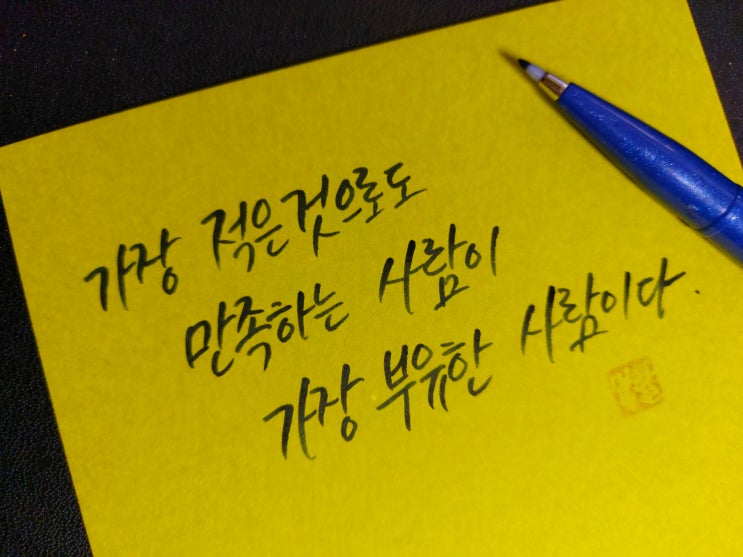 가장 적은것으로도
만족하는 사람이
가장 부유한 사람이다.